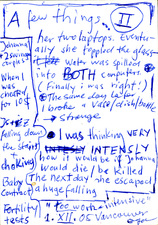 A few things... II
her two laptops. Eventu-
ally she tippled the glass
water was spilled
into BOTH computers
(Finally I was right!)
The same day later
I broke a vase/dish/bottle
→ strange
I was thinking VERY
INTENSLY
how it would be if Johanna
would die/be killed
The next day she escaped
a huge falling
"too work-intensive"
1. XII. 05 Vancouver
Johanna
2 swing
When I
was
cheated
for 10$
falling down
the stairs
choking
Baby
Control
Fertility
tests